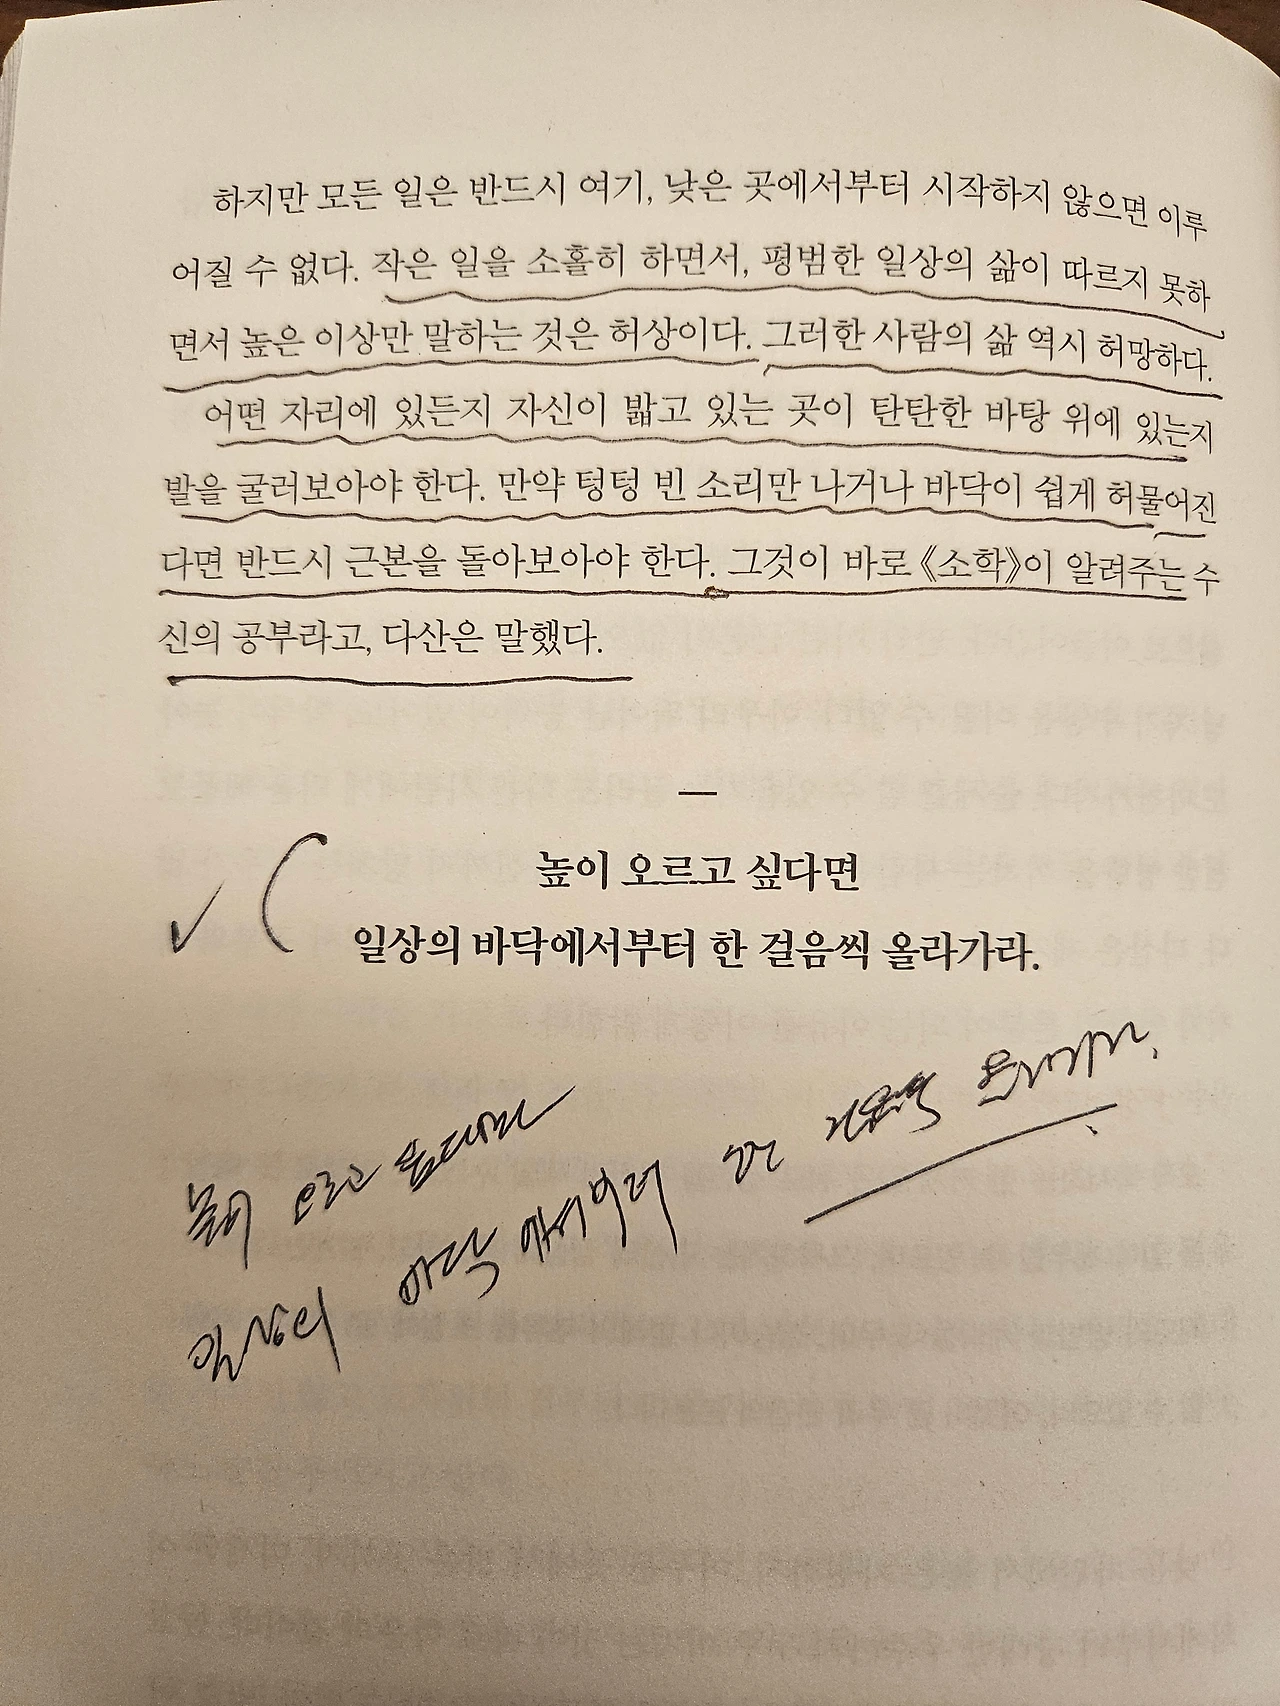 하지만 모든 일은 반드시 여기, 낮은 곳에서부터 시작하지 않으면 이루
어질 수 없다. 작은 일을 소홀히 하면서, 평범한 일상의 삶이 따르지 못하
면서 높은 이상만 말하는 것은 허상이다. 그러한 사람의 삶 역시 허망하다.
어떤 자리에 있든지 자신이 밟고 있는 곳이 탄탄한 바탕 위에 있는지
발을 굴러보아야 한다. 만약 텅텅 빈 소리만 나거나 바닥이 쉽게 허물어진
다면 반드시 근본을 돌아보아야 한다. 그것이 바로 《소학》이 알려주는 수
신의 공부라고, 다산은 말했다.
높이 오르고 싶다면
일상의 바닥에서부터 한 걸음씩 올라가라.
높이 오르고 싶다면
일상의 바닥에서부터 한 걸음씩 올라가라.